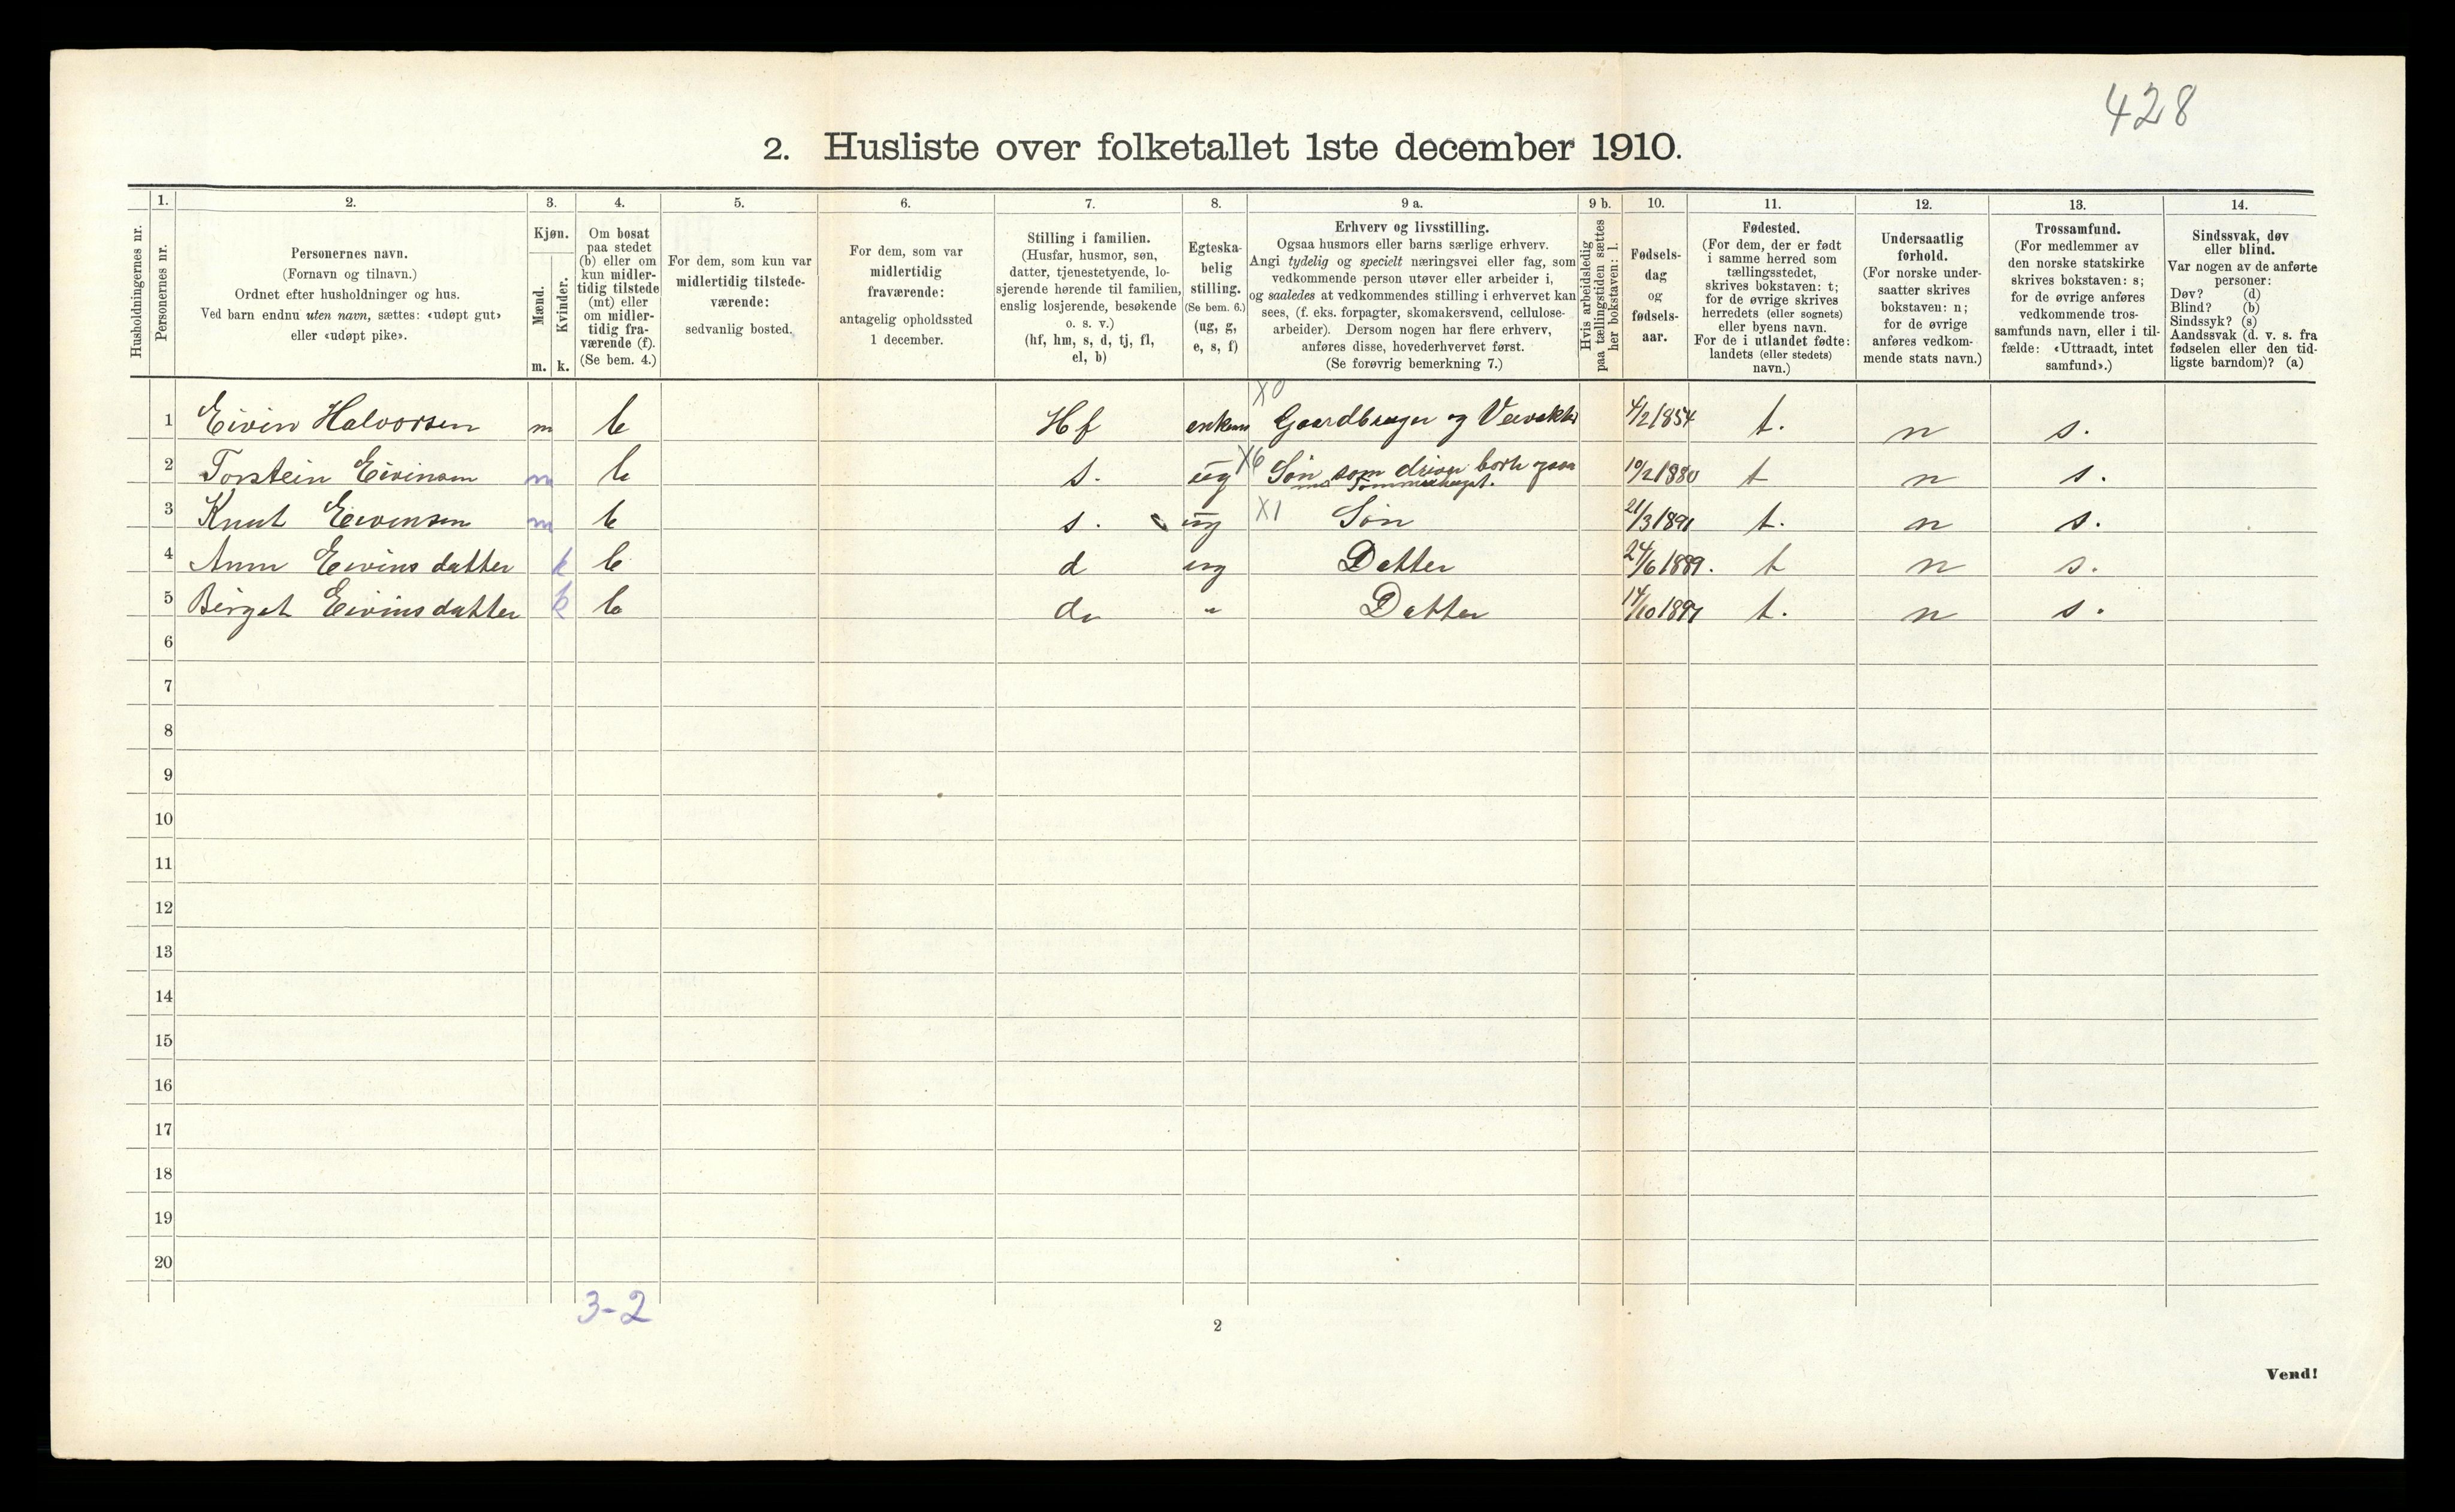 428
2. Husliste over folketallet 1ste december 1910.
Husholdningernes nr.
1.
Personernes nr.
2.
Personernes navn.
(Fornavn og tilnavn.)
Ordnet efter husholdninger og hus.
Ved barn endnu uten navn, sættes: «udøpt gut»
eller «udøpt pike».
3.
Kjøn.
Mænd.
Kvinder.
m. k.
4.
Om bosat
paa stedet
(b) eller om
kun midler-
tidig tilstede
(mt) eller
om midler-
tidig fra-
værende (f).
(Se bem. 4.)
5.
For dem, som kun var
midlertidig tilstede-
værende:
sedvanlig bosted.
6.
For dem, som var
midlertidig
fraværende:
antagelig opholdssted
1 december.
7.
Stilling i familien.
(Husfar, husmor, søn,
datter, tjenestetyende, lo-
sjerende hørende til familien,
enslig losjerende, besøkende
o. s. v.)
(hf, hm, s, d, tj, fl,
el, b)
8.
Egteska-
belig
stilling.
(Se bem. 6.)
(ug, g,
e, s, f)
9 a.
Erhverv og livsstilling.
Ogsaa husmors eller barns særlige erhverv.
Angi tydelig og specielt næringsvei eller fag, som
vedkommende person utøver eller arbeider i,
og saaledes at vedkommendes stilling i erhvervet kan
sees, (f. eks. forpagter, skomakersvend, cellulose-
arbeider). Dersom nogen har flere erhverv,
anføres disse, hovederhvervet først.
(Se forøvrig bemerkning 7.)
9 b.
Hvis arbeidsledig
paa tællingstiden sættes
her bokstaven: l.
10.
Fødsels-
dag
og
fødsels-
aar.
11.
Fødested.
(For dem, der er født
i samme herred som
tællingsstedet,
skrives bokstaven: t;
for de øvrige skrives
herredets (eller sognets)
eller byens navn.
For de i utlandet fødte:
landets (eller stedets)
navn.)
12.
Undersaatlig
forhold.
(For norske under-
saatter skrives
bokstaven: n;
for de øvrige
anføres vedkom-
mende stats navn.)
13.
Trossamfund.
(For medlemmer av
den norske statskirke
skrives bokstaven: s;
for de øvrige anføres
vedkommende tros-
samfunds navn, eller i til-
fælde: «Uttraadt, intet
samfund».)
14.
Sindssvak, døv
eller blind.
Var nogen av de anførte
personer:
Døv? (d)
Blind? (b)
Sindssyk? (s)
Aandssvak (d. v. s. fra
fødselen eller den tid-
ligste barndom)? (a)
X0
1 Eivin Halvorsen m b Hf enkem Gaardbruger og 4/2 1854 t. n s.
2 Torstein Eivinsen m b s. ug X6 Søn som driver 10/2 1880 t n s.
3 Knut Eivensen m b s. ug X1 Søn 21/3 1891 t. n s.
4 Anne Eivinsdatter k b d ug Datter 24/6 1889. t n s.
5 Birget Eivinsdatter k b do " Datter 14/10 1897 t. n s.
6
7
8
9
10
11
12
13
14
15
16
17
18
19
20
3-2
2
Vend!